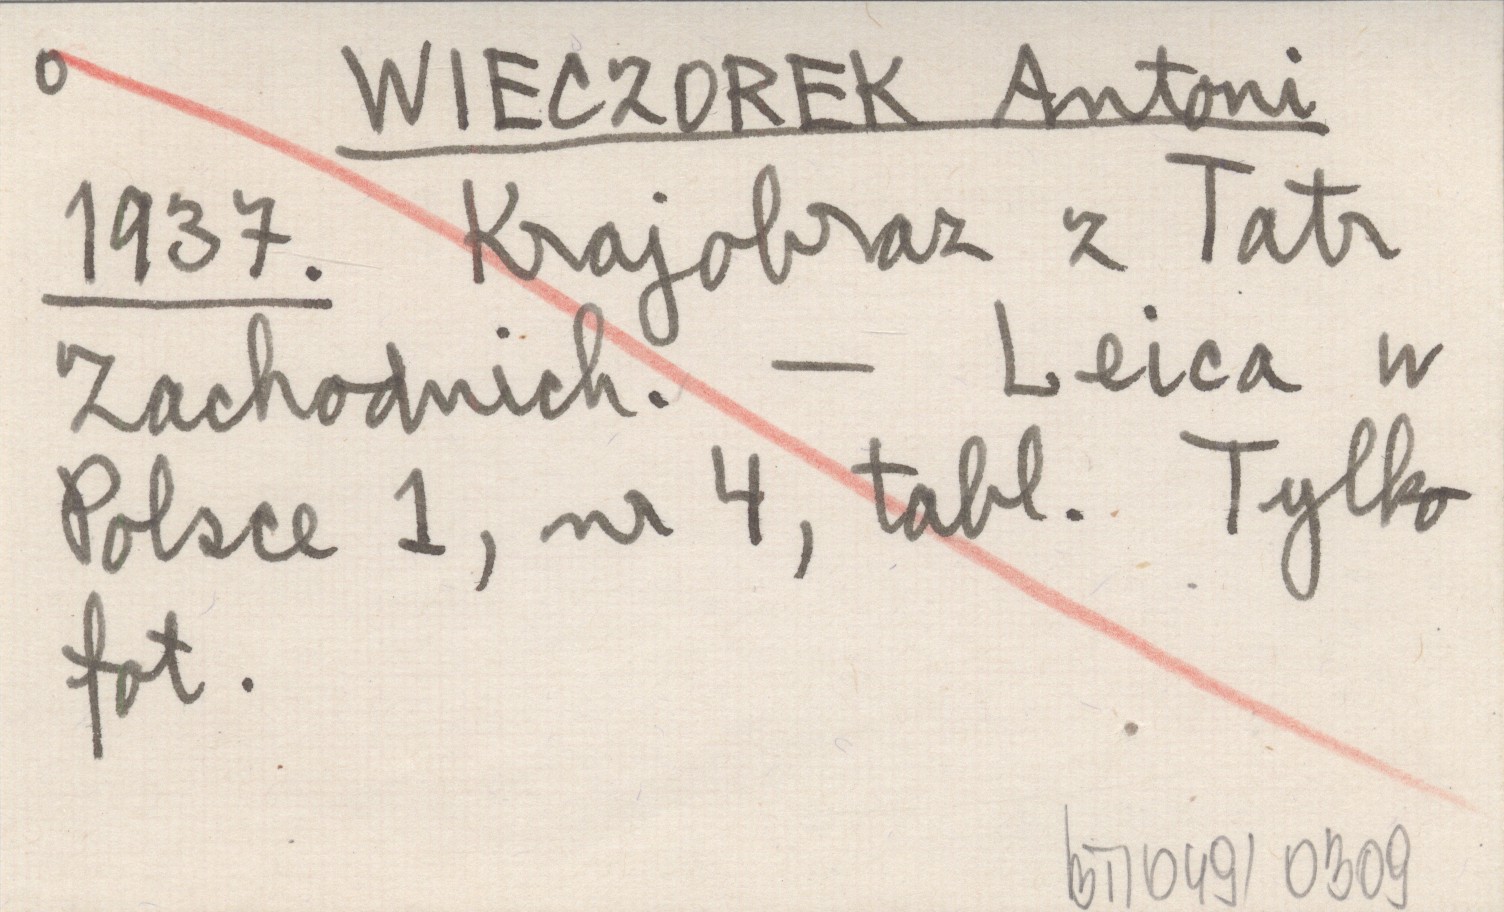 o WIECZOREK Antoni
1937. Krajobraz z Tatr
Zachodnich. — Leica w
Polsce 1, nr 4, tabl. Tylko
fot.
0309